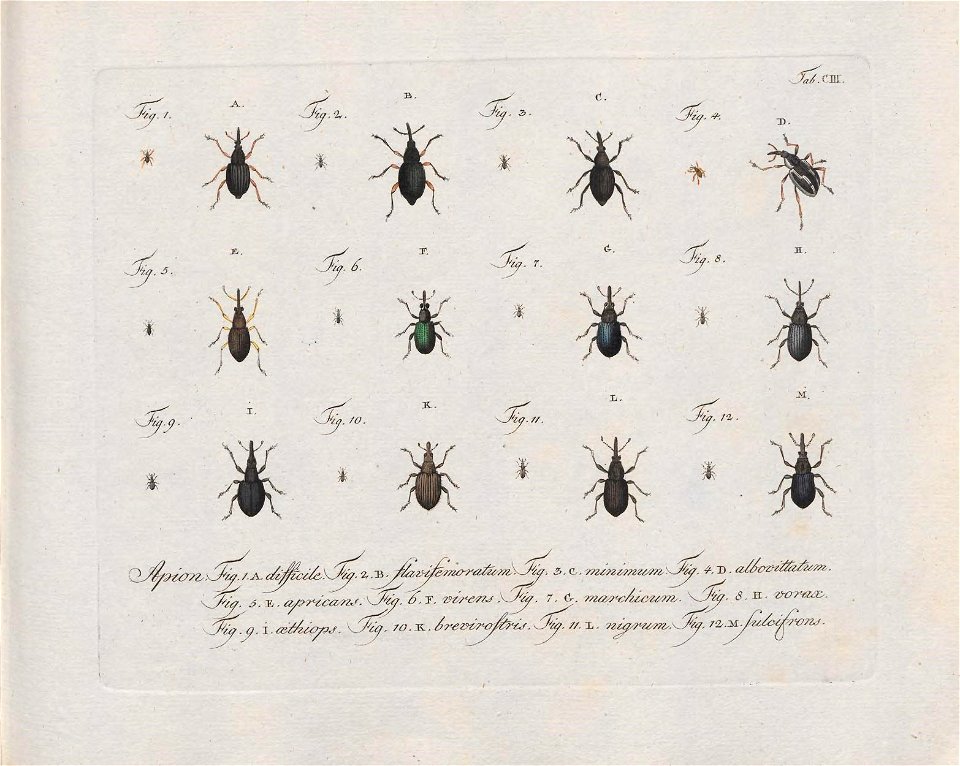 Tab. CIII.
Fig. 1. A. Fig. 2. B. Fig. 3. C. Fig. 4. D.
Fig. 5. E. Fig. 6. F. Fig. 7. G. Fig. 8. H.
Fig. 9. I. Fig. 10. K. Fig. 11. L. Fig. 12. M.
Apion. Fig. 1. A. difficile. Fig. 2. B. flavifemoratum. Fig. 3. C. minimum. Fig. 4. D. albovittatum.
Fig. 5. E. apricans. Fig. 6. F. virens. Fig. 7. G. marchicum. Fig. 8. H. vorax.
Fig. 9. I. æthiops. Fig. 10. K. breviroſtris. Fig. 11. L. nigrum. Fig. 12. M. ſulcifrons.